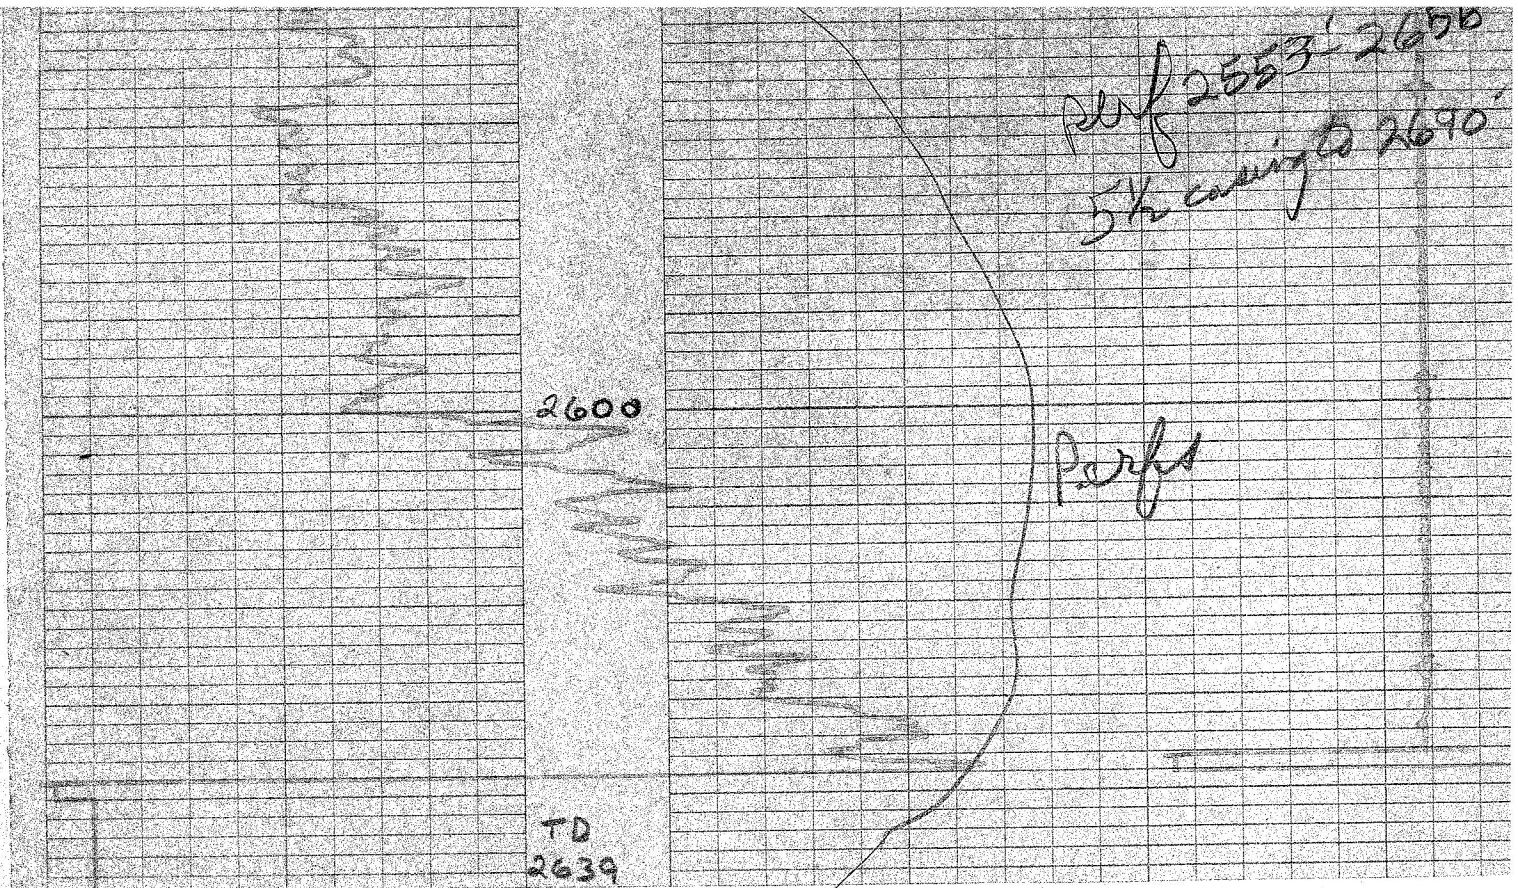 perf 2553'-2656
5½ casing to 2690'
2600
Perfs
TD
2639